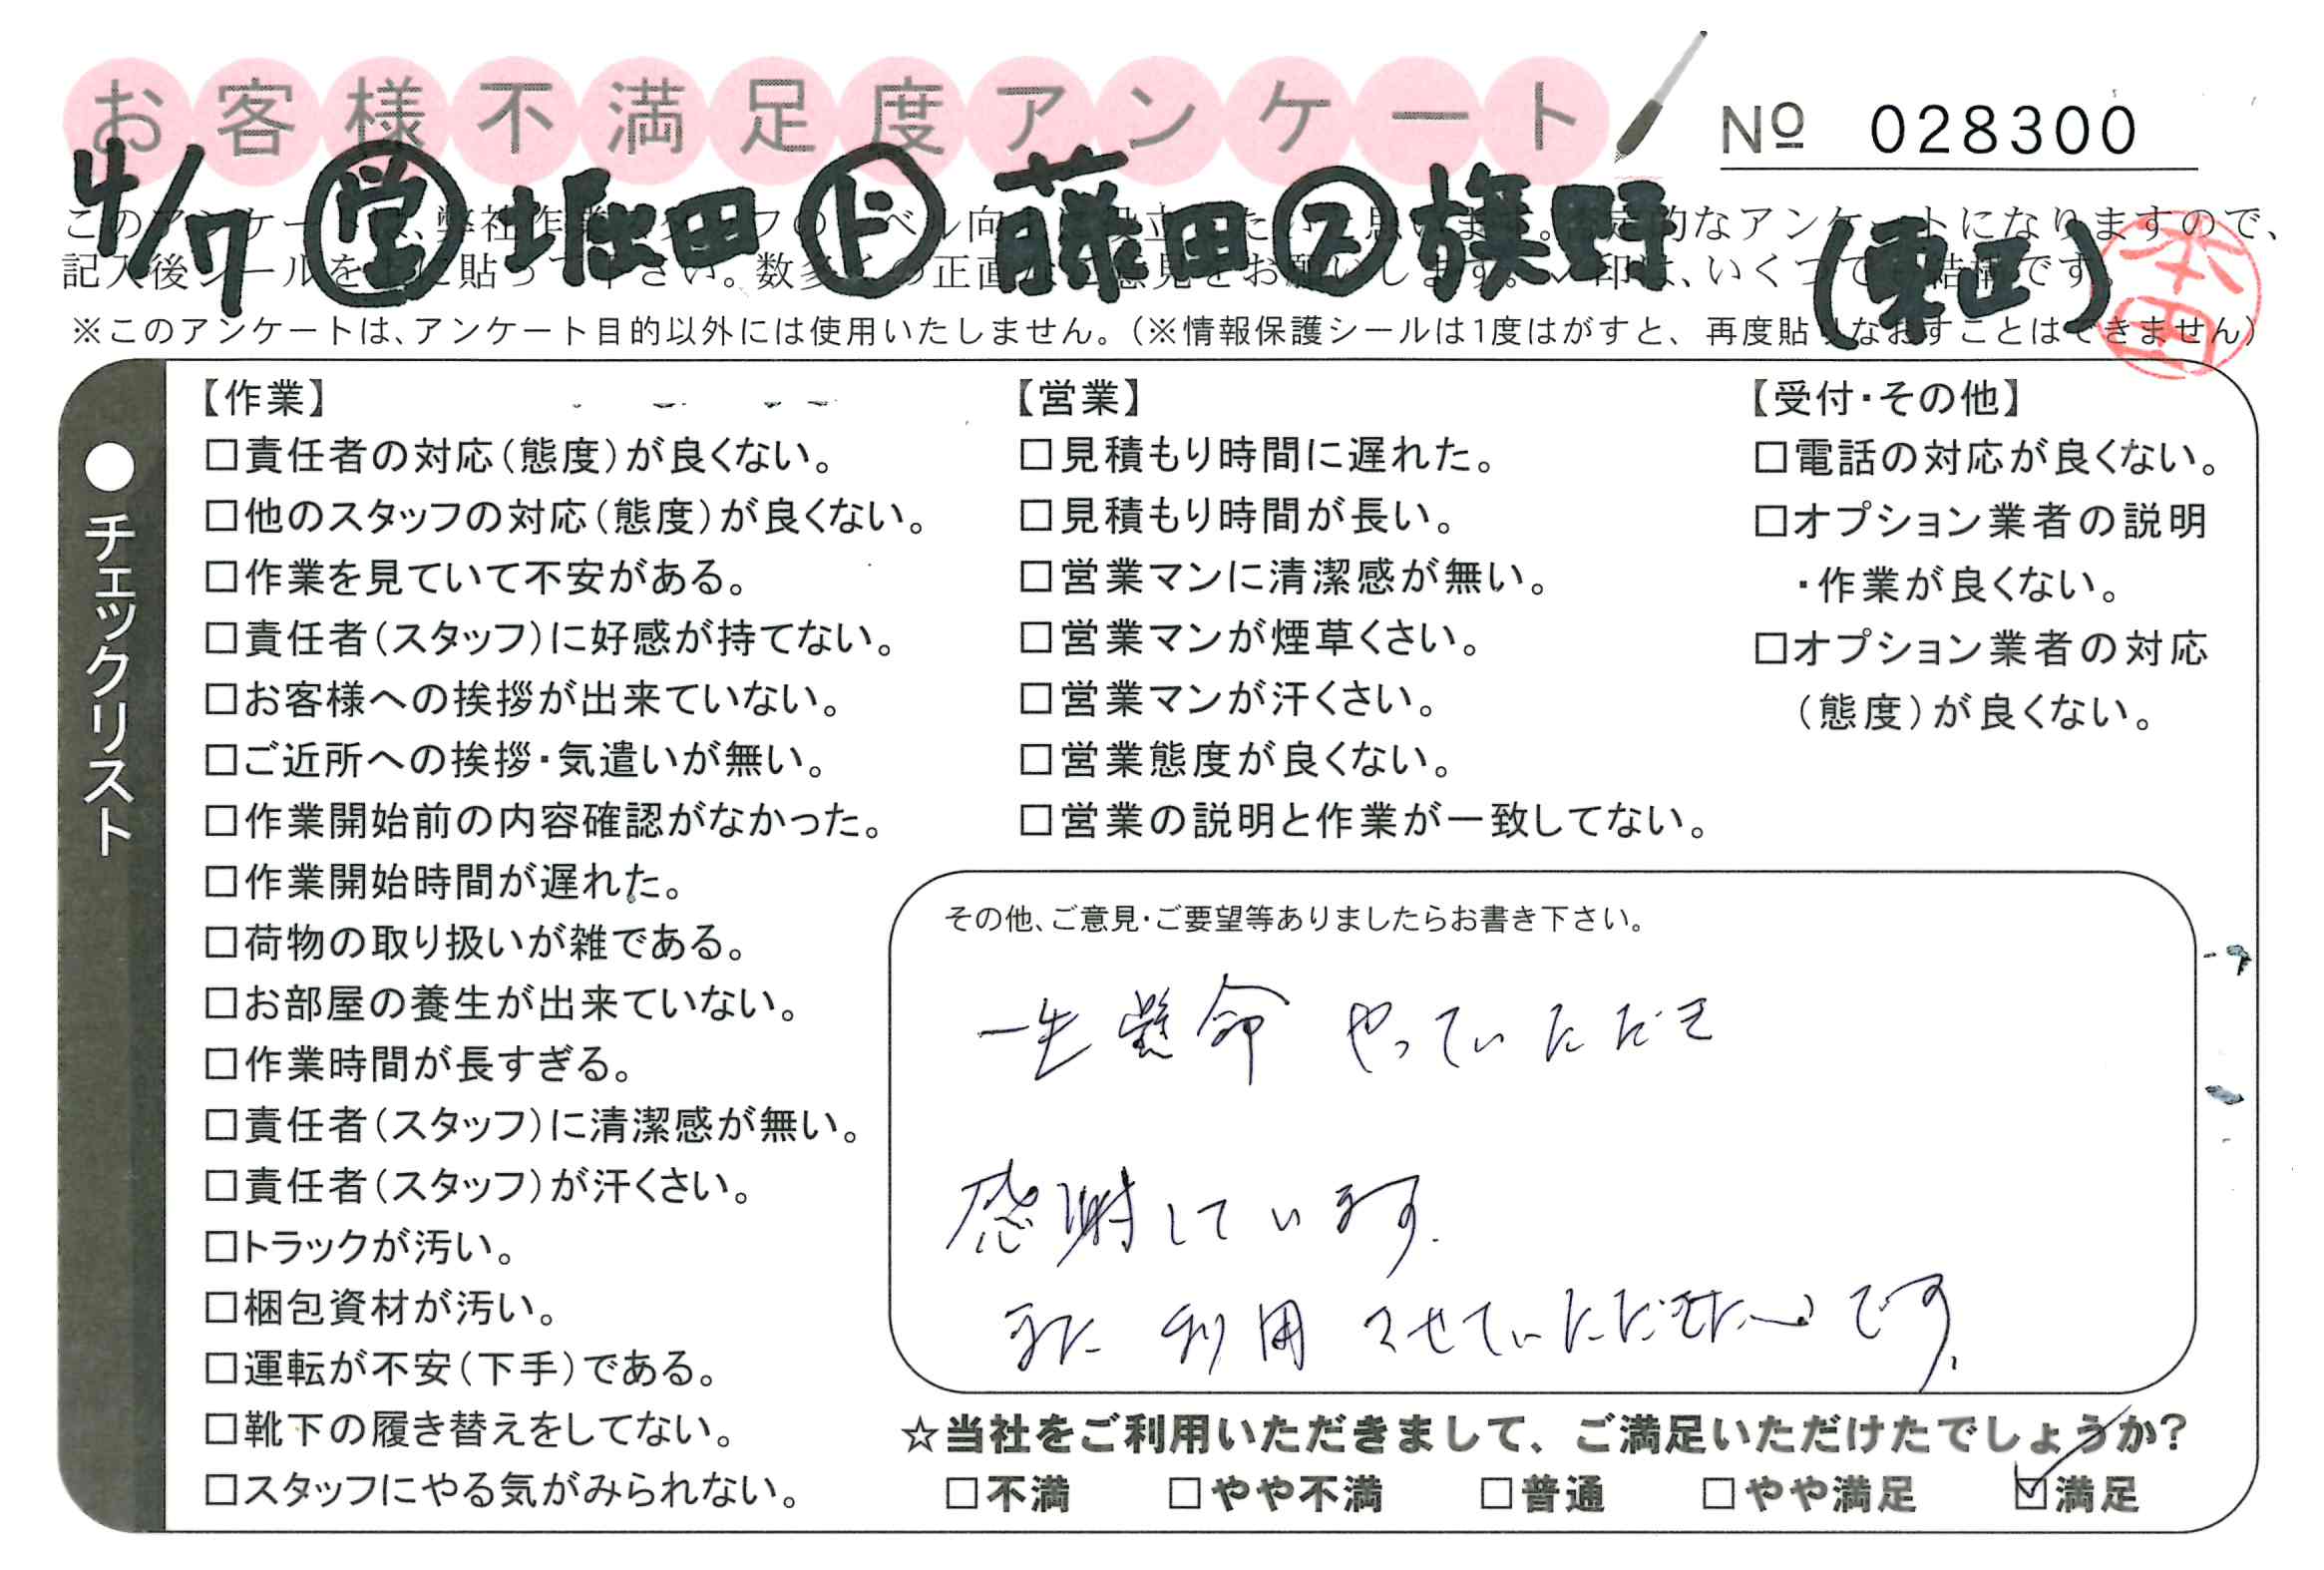 お客様不満足度アンケート
No 028300
4/7 営 堀田 ド 藤田 ス 旗野 (東正)
本田
このアンケートは、弊社作業スタッフのレベル向上に役立てたいと思います。否定的なアンケートになりますので、
記入後シールを上に貼って下さい。数多くの正直なご意見をお願いします。✓印は、いくつでも結構です。
※このアンケートは、アンケート目的以外には使用いたしません。(※情報保護シールは1度はがすと、再度貼りなおすことはできません)
●チェックリスト
【作業】
□責任者の対応(態度)が良くない。
□他のスタッフの対応(態度)が良くない。
□作業を見ていて不安がある。
□責任者(スタッフ)に好感が持てない。
□お客様への挨拶が出来ていない。
□ご近所への挨拶・気遣いが無い。
□作業開始前の内容確認がなかった。
□作業開始時間が遅れた。
□荷物の取り扱いが雑である。
□お部屋の養生が出来ていない。
□作業時間が長すぎる。
□責任者(スタッフ)に清潔感が無い。
□責任者(スタッフ)が汗くさい。
□トラックが汚い。
□梱包資材が汚い。
□運転が不安(下手)である。
□靴下の履き替えをしてない。
□スタッフにやる気がみられない。
【営業】
□見積もり時間に遅れた。
□見積もり時間が長い。
□営業マンに清潔感が無い。
□営業マンが煙草くさい。
□営業マンが汗くさい。
□営業態度が良くない。
□営業の説明と作業が一致してない。
【受付・その他】
□電話の対応が良くない。
□オプション業者の説明
・作業が良くない。
□オプション業者の対応
(態度)が良くない。
その他、ご意見・ご要望等ありましたらお書き下さい。
一生懸命 やっていただき
感謝しています.
また 利用 させていただきたいです.
☆当社をご利用いただきまして、ご満足いただけたでしょうか?
□不満 □やや不満 □普通 □やや満足 ☑満足